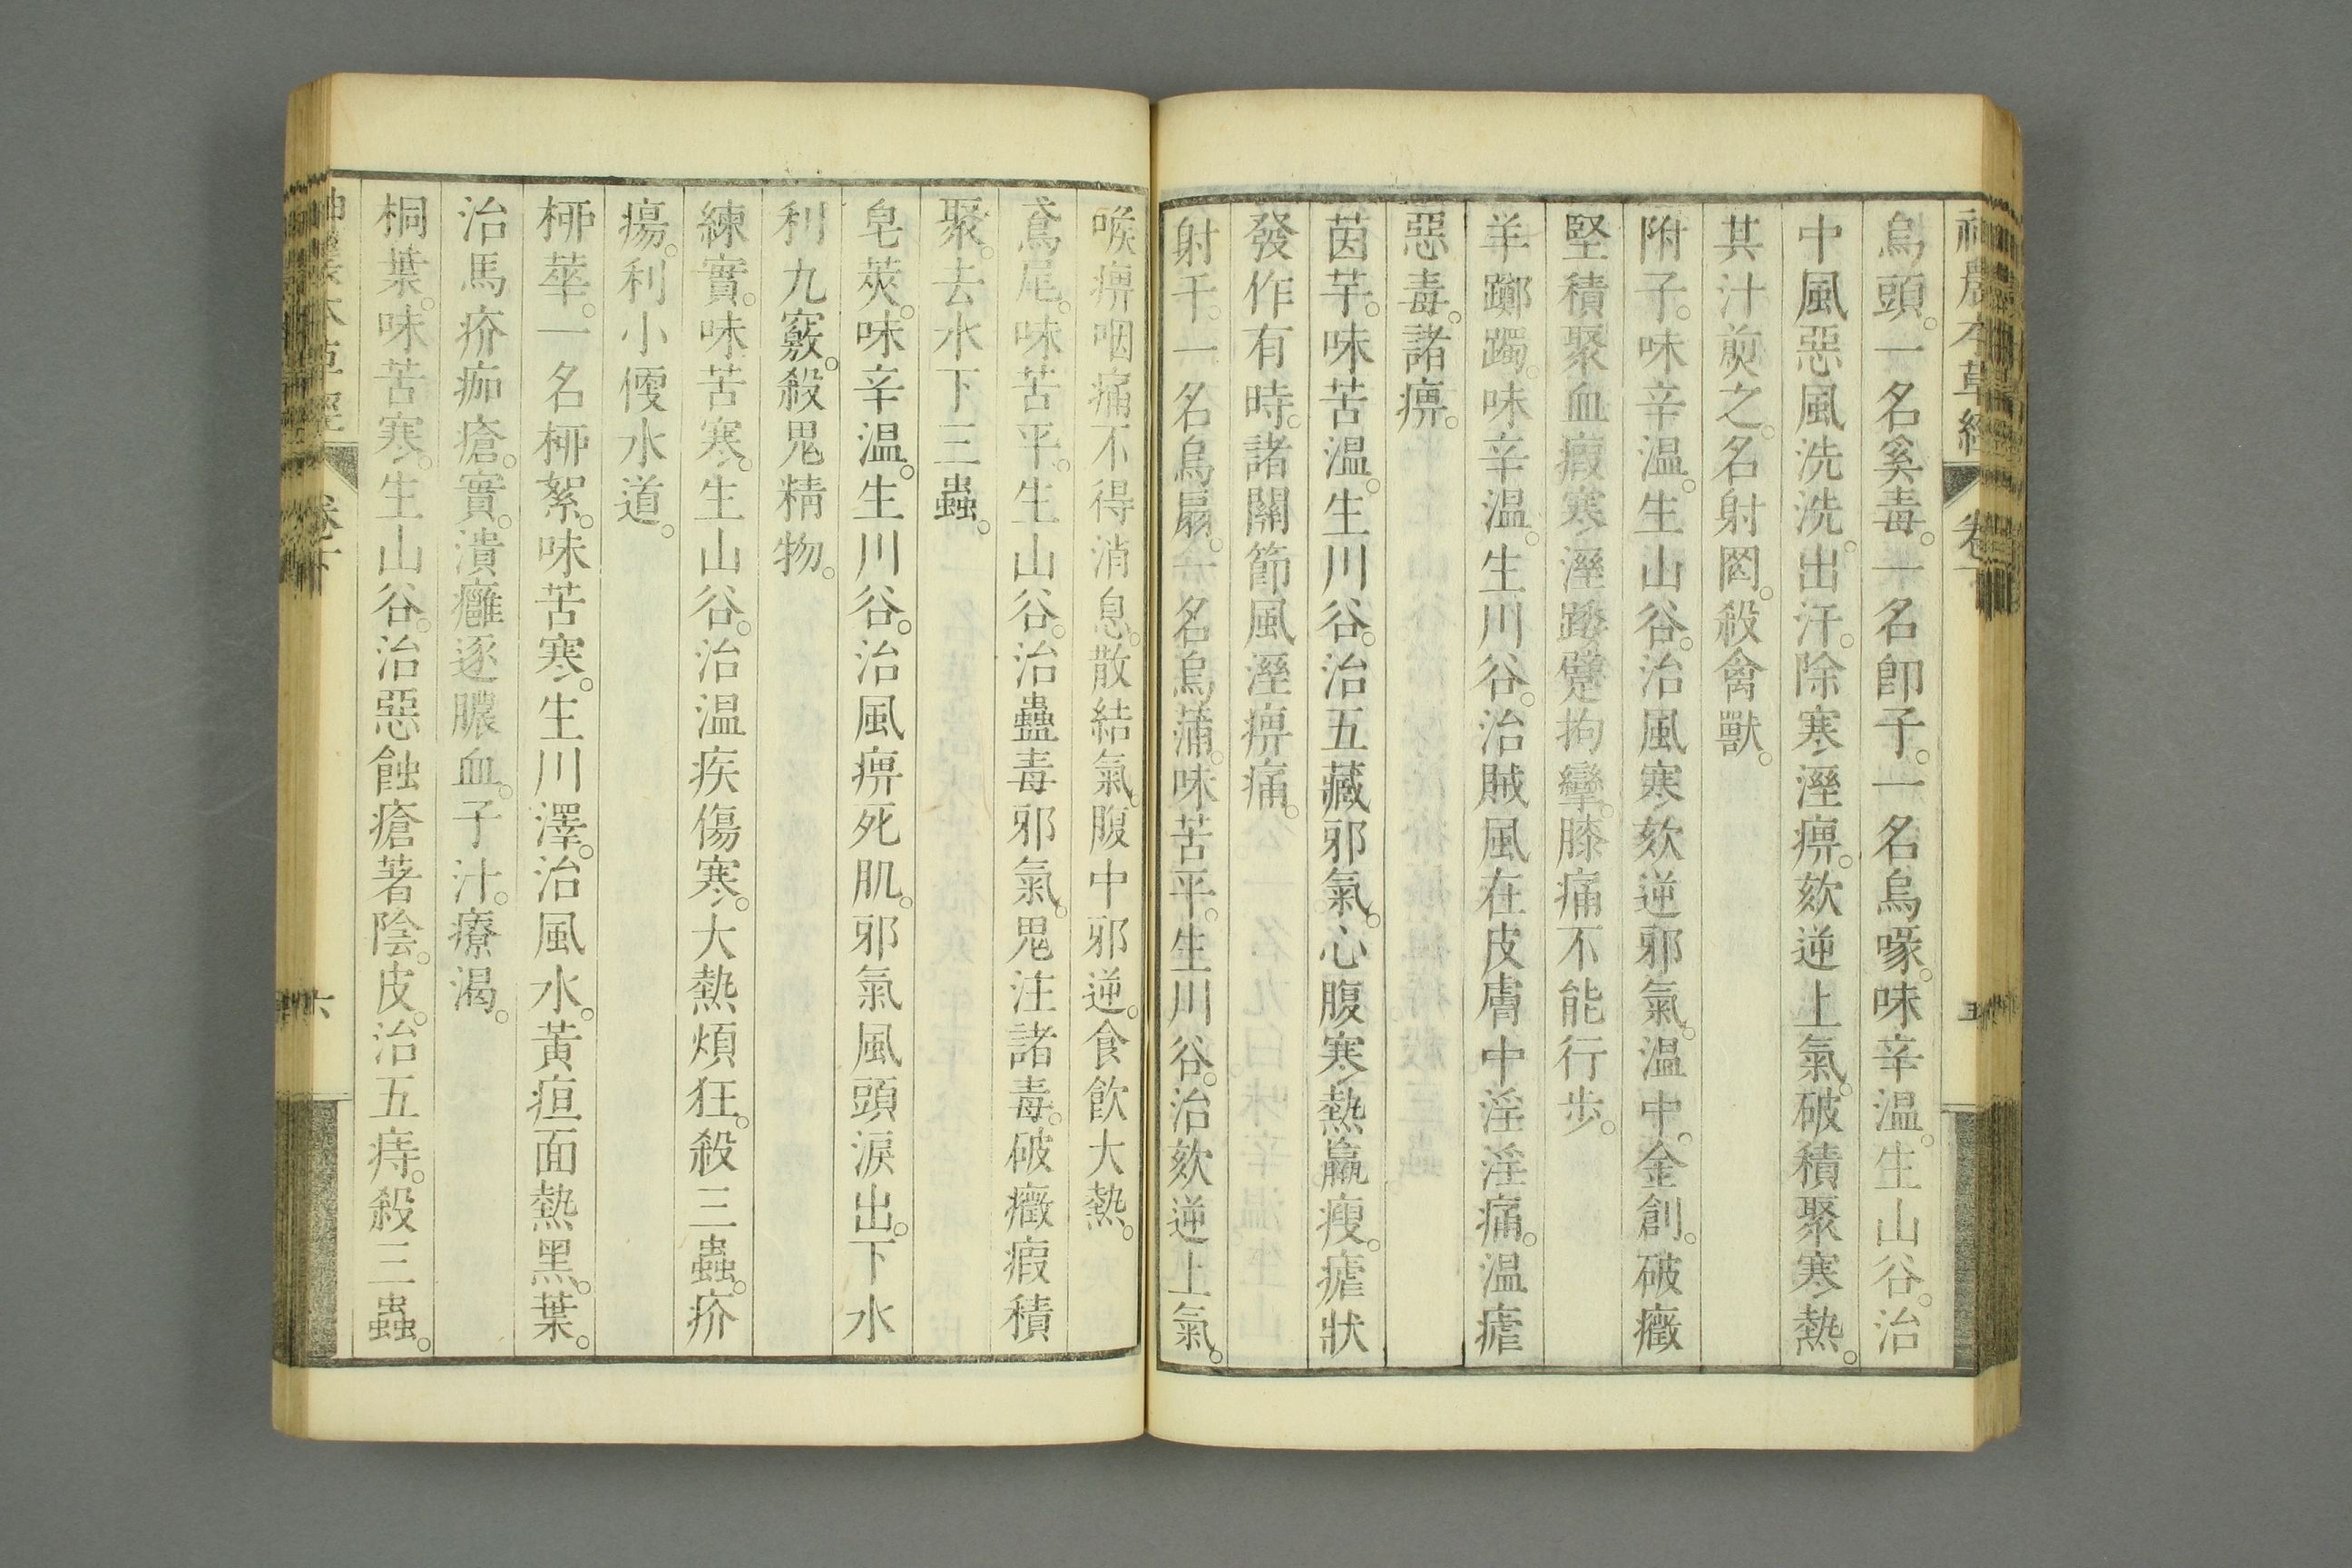 神農本草經 卷 五
烏頭。一名奚毒。一名卽子。一名烏喙。味辛温。生山谷。治
中風惡風洗洗。出汗。除寒溼痹。欬逆上氣。破積聚寒熱。
其汁煎之。名射罔。殺禽獸。
附子。味辛温。生山谷。治風寒欬逆邪氣。温中。金創。破癥
堅積聚血瘕寒溼踒躄拘攣。膝痛不能行步。
羊躑躅。味辛温。生川谷。治賊風在皮膚中淫淫痛。温瘧
惡毒。諸痹。
茵芋。味苦温。生川谷。治五藏邪氣。心腹寒熱羸瘦。瘧狀
發作有時。諸關節風溼痹痛。
射干。一名烏扇。一名烏蒲。味苦平。生川谷。治欬逆上氣。
喉痹咽痛不得消息。散結氣。腹中邪逆。食飮大熱。
鳶尾。味苦平。生山谷。治蠱毒邪氣。鬼注諸毒。破癥瘕積
聚。去水下三蟲。
皂莢。味辛温。生川谷。治風痹死肌。邪氣風頭淚出。下水
利九竅。殺鬼精物。
練實。味苦寒。生山谷。治温疾傷寒。大熱煩狂。殺三蟲。疥
瘍。利小便水道。
桺華。一名桺絮。味苦寒。生川澤。治風水。黃疸面熱黑。葉。
治馬疥痂瘡。實。潰癰逐膿血。子汁。療渴。
桐葉。味苦寒。生山谷。治惡蝕瘡著陰。皮。治五痔。殺三蟲。
神農本草經 卷下 六